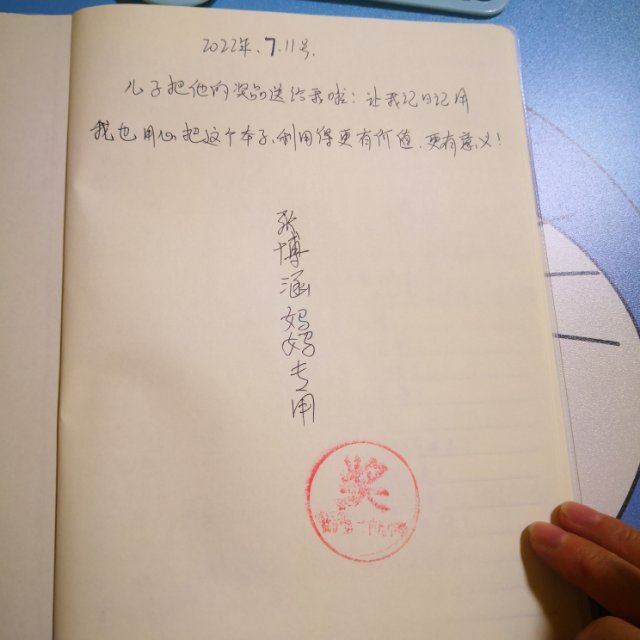 2022年.7.11号.
儿子把他的奖品送给我啦！让我记日记用
我也用心把这个本子、利用得更有价值、更有意义！
张博涵妈妈专用
奖